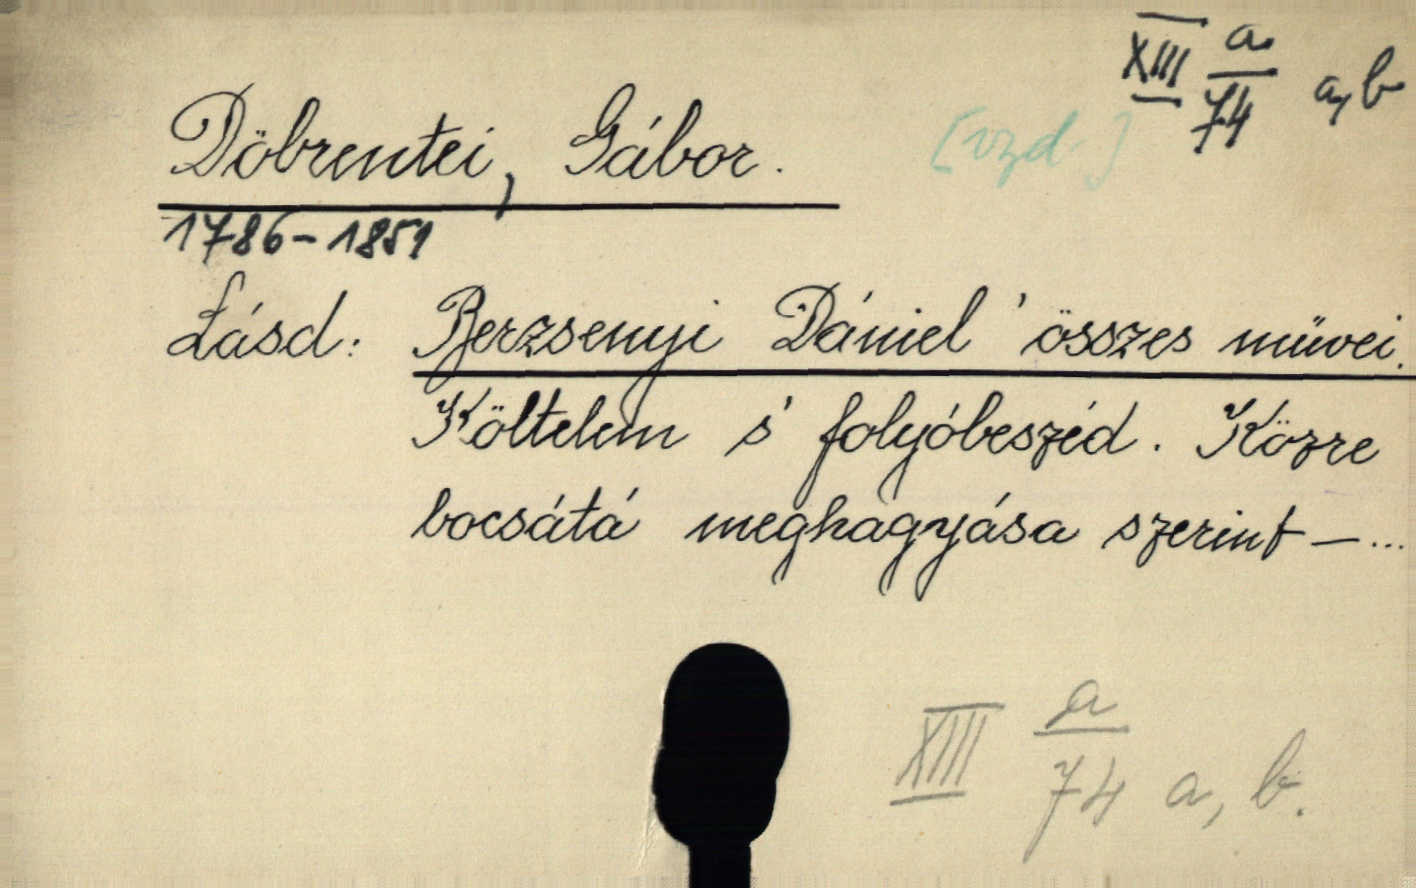 XIII a/74 a, b
Döbrentei, Gábor. [vzd.]
1786-1851
Lásd: Berzsenyi Dániel ' összes művei.
Költelem s' folyóbeszéd. Közre
bocsátá meghagyása szerint – ...
XIII a/74 a, b.